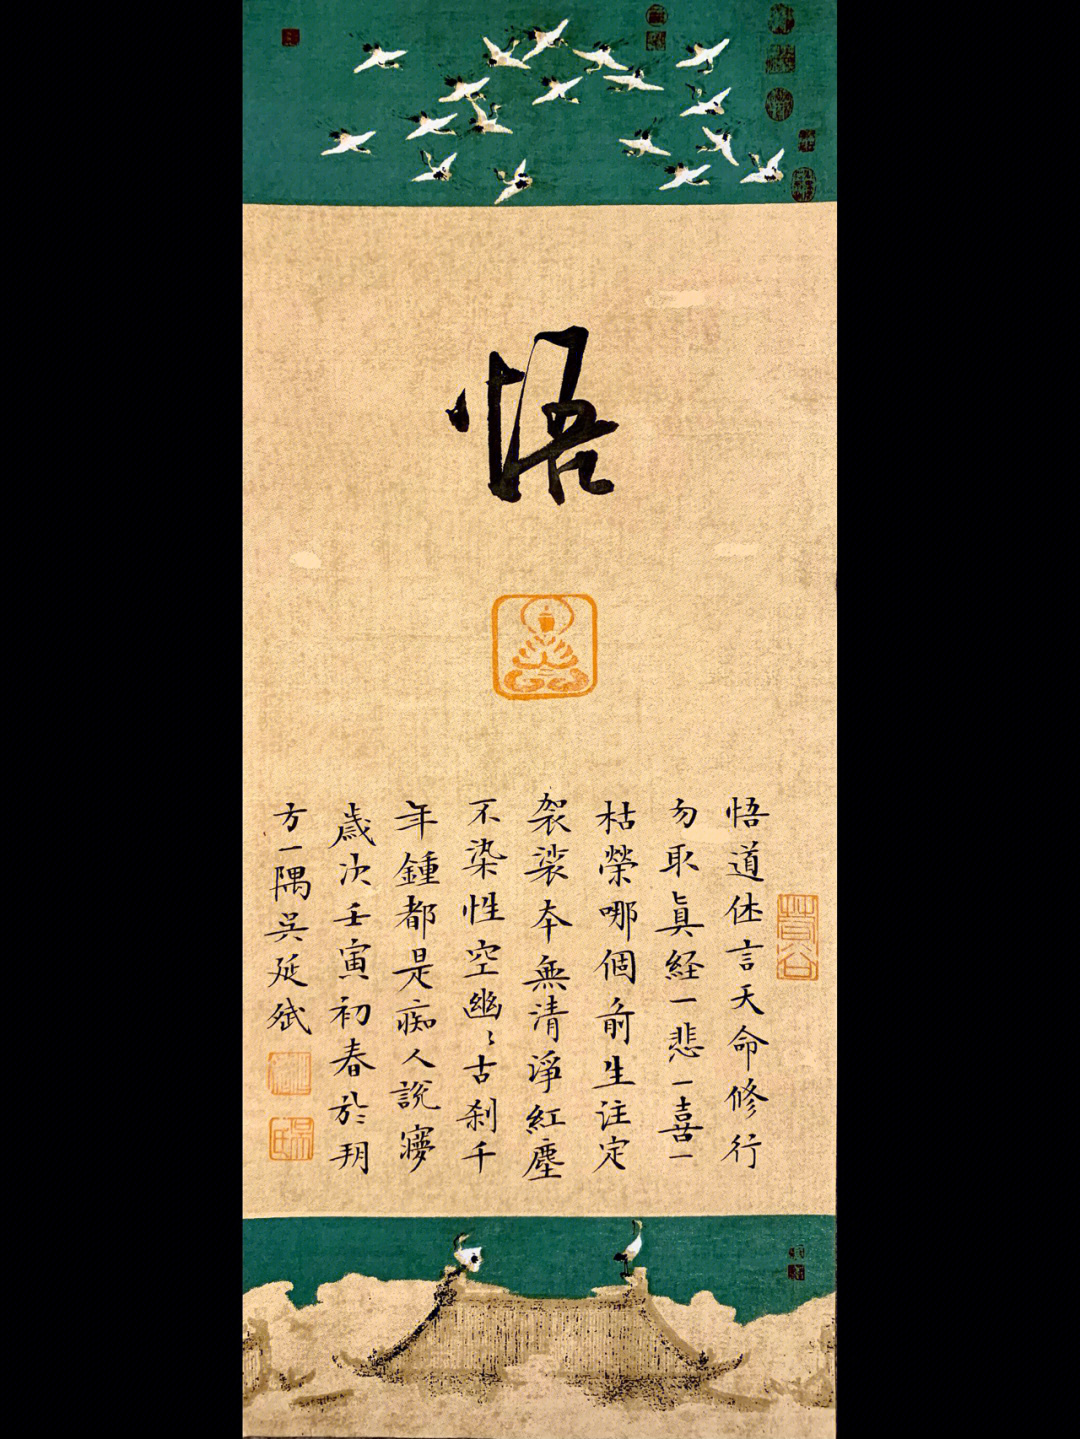 悟
悟道休言天命修行
勿取眞経一悲一喜一
枯榮哪個前生注定
袈裟本無清淨紅塵
不染性空幽〻古刹千
年鍾都是痴人説夢
歲次壬寅初春於玥
方一隅吳延斌